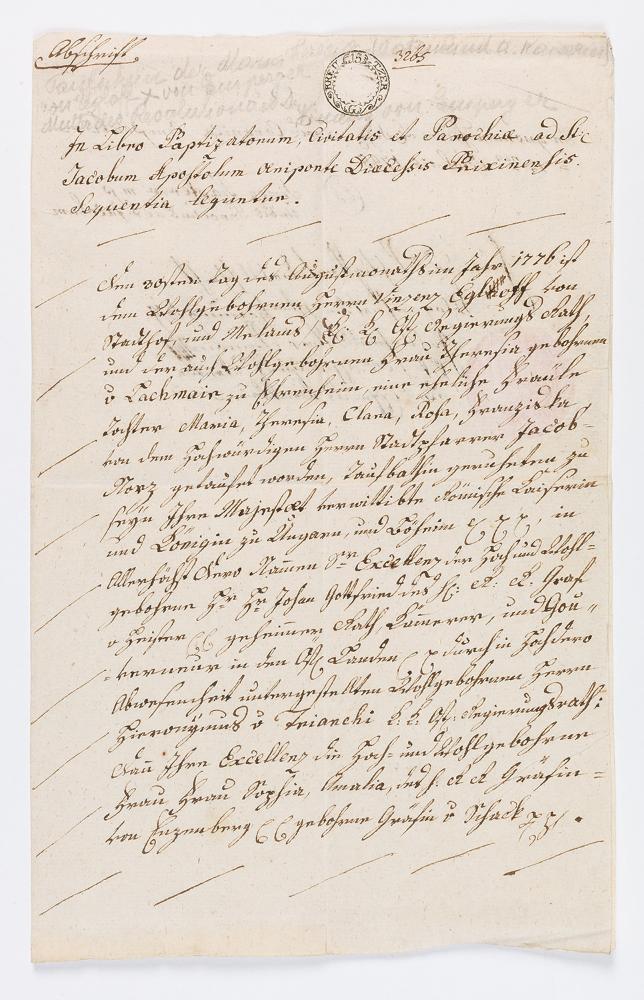 Abschrift
3265
In Libro Baptizatorum, Civitatis et Parochiæ ad St:
Jacobum Apostolum Oeniponti Diæcesis Brixinensis.
Sequentia leguntur.
Den 30sten Tag des Augustmonaths im Jahr 1776 ist
dem Wohlgebohrnen Herrn Vinzenz Egloff von
Stadthof, und Melans K: K: O: Ö: Regierungs Rath,
und der auch Wohlgebohrnen Frau Theresia gebohrnen
v Lachmair zu Ehrenheim, eine eheliche Fräule
Tochter Maria, Theresia, Clara, Rosa, Franziska,
von dem Hochwürdigen Herrn Stadtpfarrer Jacob
Norz getauft worden, Taufbathin geruheten zu
seyn Ihre Majestæt verwittibte Römische Kaiserin
und Königin zu Ungarn, und Böheim in
Allerhöchst Dero Namen Sr Excellenz der Hoch und Wohl-
gebohrne Hr Hr Johan Gottfried des H: R: R: Graf
v Heister geheimer Rath, Kämmerer, und Gou-
verneur in den O Ö Landen durch in Hochdero
Abwesenheit untergestellten Wohlgebohrnen Herrn
Hieronÿmus v Trianchi K: K: O: Ö: Regierungsrath:
dann Ihre Excellenz die Hoch- und Wohlgebohrne
Frau Frau Sophia, Amalia, des H. R R Gräfin
von Enzenberg gebohrne Gräfin v Schack